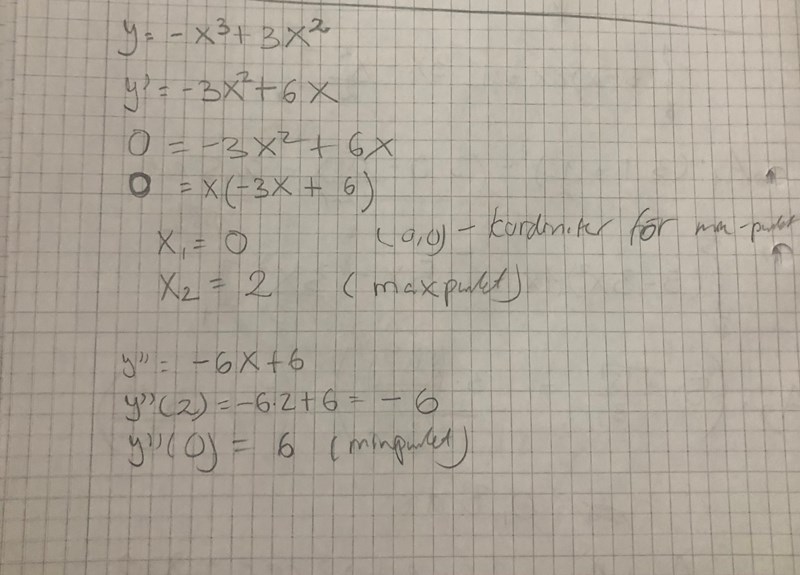 y = -x³ + 3x²
y' = -3x² + 6x
0 = -3x² + 6x
0 = x(-3x + 6)
x₁ = 0 (0,0) - kordiniter för min-punkt
x₂ = 2 (maxpunkt)
y'' = -6x + 6
y''(2) = -6·2 + 6 = -6
y''(0) = 6 (minpunkt)